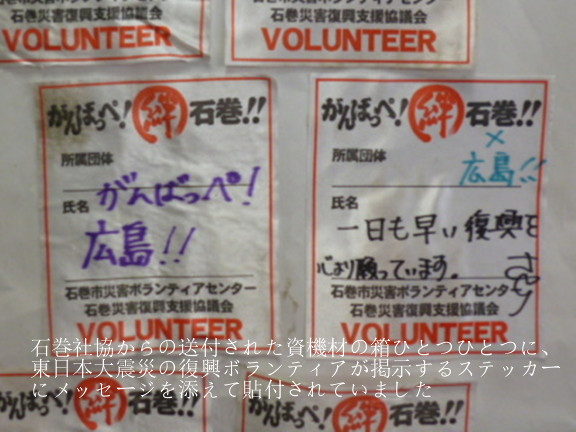 石巻災害復興支援協議会
VOLUNTEER
石巻災害復興支援協議会
VOLUNTEER
がんばっぺ! 絆 石巻!!
所属団体
氏名 がんばっぺ!
広島!!
石巻市災害ボランティアセンター
石巻災害復興支援協議会
VOLUNTEER
がんばっぺ! 絆 石巻!!
×
所属団体 広島!!
氏名
一日も早い復興を
心より願っています。
石巻市災害ボランティアセンター
石巻災害復興支援協議会
VOLUNTEER
石巻社協からの送付された資機材の箱ひとつひとつに、
東日本大震災の復興ボランティアが掲示するステッカー
にメッセージを添えて貼付されていました
がんばっぺ! 絆 石巻!!
がんばっぺ! 絆 石巻!!